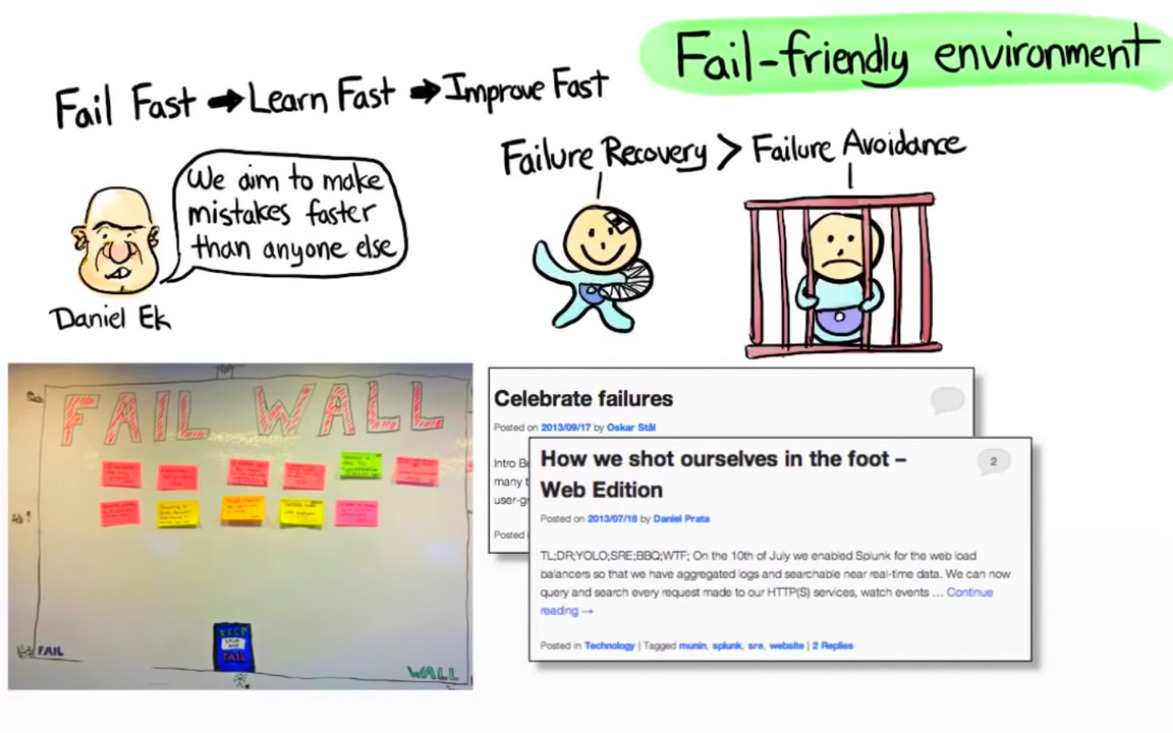 Fail-friendly environment
Fail Fast ➡ Learn Fast ➡ Improve Fast
Failure Recovery > Failure Avoidance
We aim to make
mistakes faster
than anyone else
Daniel Ek
FAIL WALL
KEEP
FAIL
FAIL
WALL
Celebrate failures
Posted on 2013/09/17 by Oskar Stål
Intro
many
Posted
How we shot ourselves in the foot –
Web Edition
2
Posted on 2013/07/18 by Daniel Prata
TL;DR;YOLO;SRE;BBQ;WTF; On the 10th of July we enabled Splunk for the web load
balancers so that we have aggregated logs and searchable near real-time data. We can now
query and search every request made to our HTTP(S) services, watch events ... Continue
reading →
Posted in Technology | Tagged munin, splunk, sre, website | 2 Replies